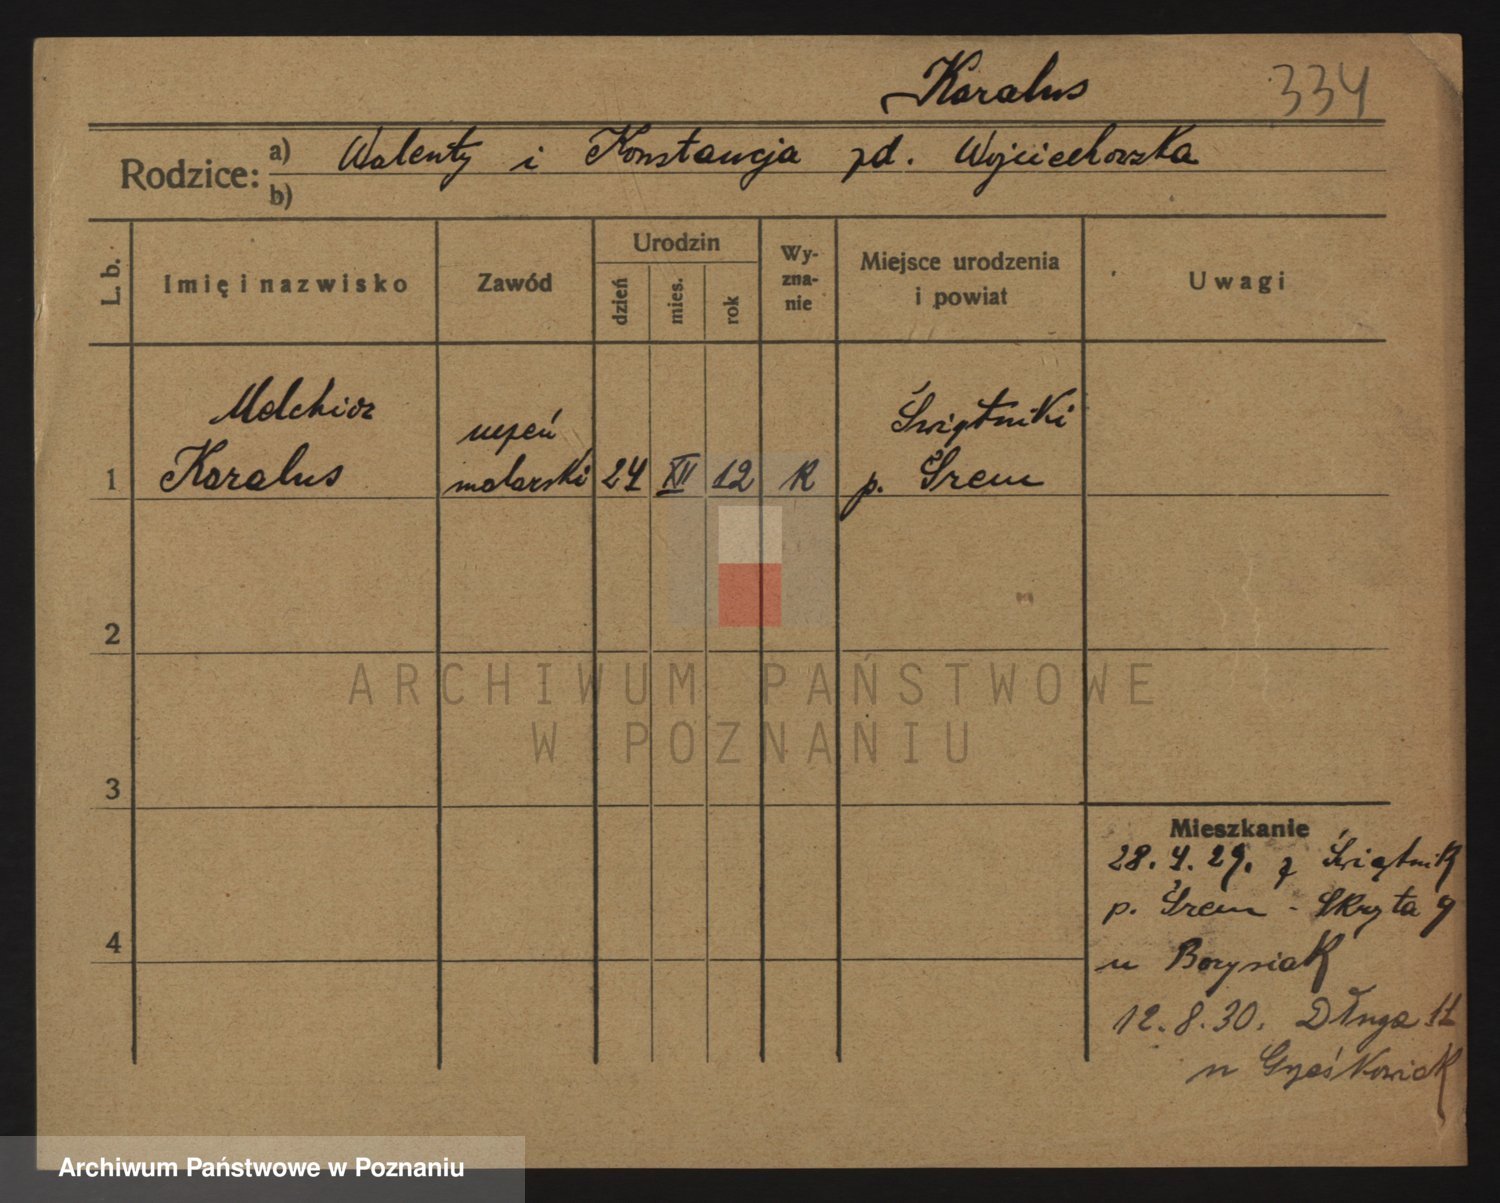 Karalus 334
Rodzice: a) Walenty i Konstancja zd. Wojciechowska
b)
L. b.
Imię i nazwisko
Zawód
Urodzin
dzień
mies.
rok
Wy-
zna-
nie
Miejsce urodzenia
i powiat
Uwagi
Melchior
Karalus
uczeń
malarski
1
24 XII 12 R
Świątniki
p. Śrem
2
3
4
Mieszkanie
28.4.29. z Świątnik
p. Śrem - Skryta 9
u Borysiak
12.8.30. Długa 11
u
ARCHIWUM PAŃSTWOWE
W POZNANIU
Archiwum Państwowe w Poznaniu